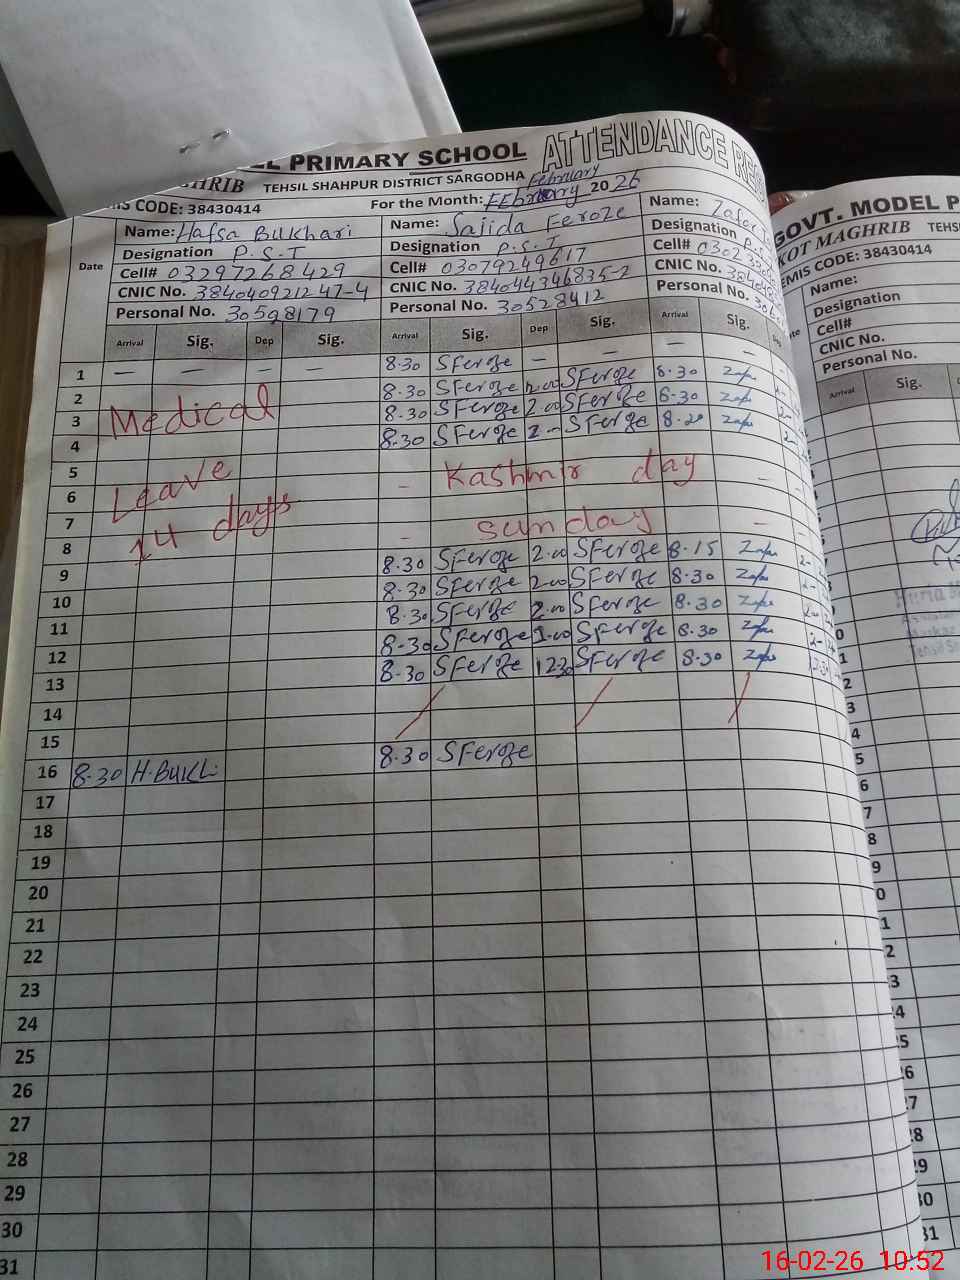 PRIMARY SCHOOL ATTENDANCE
TEHSIL SHAHPUR DISTRICT SARGODHA
CODE: 38430414 For the Month: February February 2026
Date Name: Hafsa Bukhari Name: Sajida Feroze Name:
Designation P.S.T Designation P.S.T Designation
Cell# 03297268429 Cell# 03079249617 Cell#
CNIC No. CNIC No. CNIC No.
Personal No. 30598179 Personal No. 30528412 Personal No.
Arrival Sig. Dep Sig. Arrival Sig. Dep Sig. Arrival Sig. Dep
1 — — — — 8.30 SFeroze — — —
2 8.30 SFeroze 2.00 SFeroze 8.30
3 Medical 8.30 SFeroze 2.00 SFeroze 8.30
4 8.30 SFeroze 2.— SFeroze 8.20
5 – Kashmir day –
6 Leave
7 14 days – Sunday –
8 8.30 SFeroze 2.00 SFeroze 8.15
9 8.30 SFeroze 2.00 SFeroze 8.30
10 8.30 SFeroze 2.00 SFeroze 8.30
11 8.30 SFeroze 2.00 SFeroze 8.30
12 8.30 SFeroze 12.30 SFeroze 8.30
13
14
15
16 8.30 H.BUKL. 8.30 SFeroze
17
18
19
20
21
22
23
24
25
26
27
28
29
30
31
GOVT. MODEL
KOT MAGHRIB TEHS
EMIS CODE: 38430414
Name:
Designation
Cell#
CNIC No.
Personal No.
Arrival Sig.
16-02-26 10:52